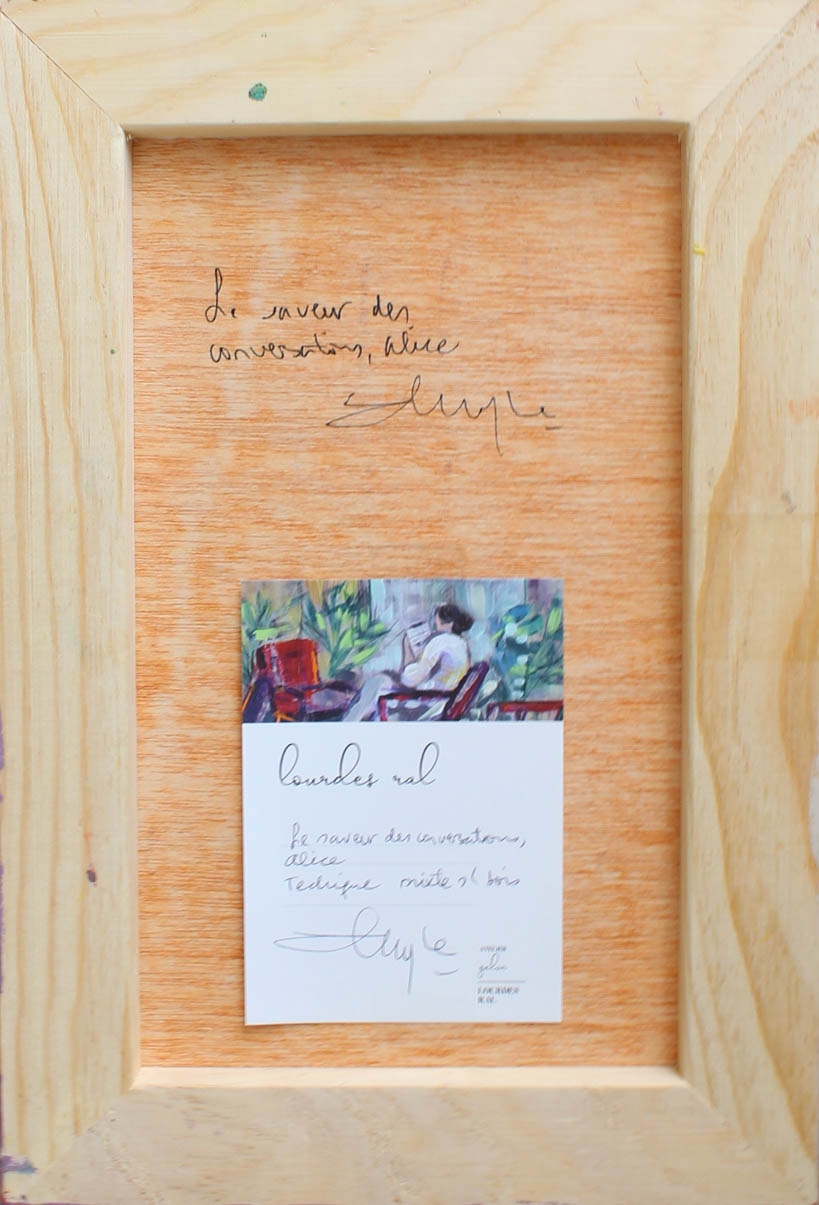 Le saveur des
conversations, Alice
lourdes ral
Le saveur des conversations,
Alice
Technique mixte s/ bois